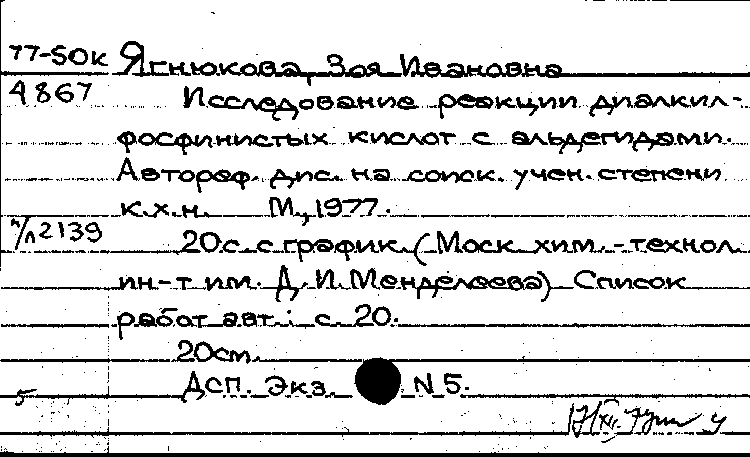 77-50к Ягнюкова, Зоя Ивановна
4867 Исследование реакции диалкил-
фосфинистых кислот с альдегидами.
Автореф. дис. на соиск. учен. степени
к.х.н. М., 1977.
п/п 2139 20 с. с график. (Моск. хим.-технол.
ин-т им. Д. И. Менделеева) Список
работ авт.: с. 20.
20см.
5 Дсп. Экз. N 5.